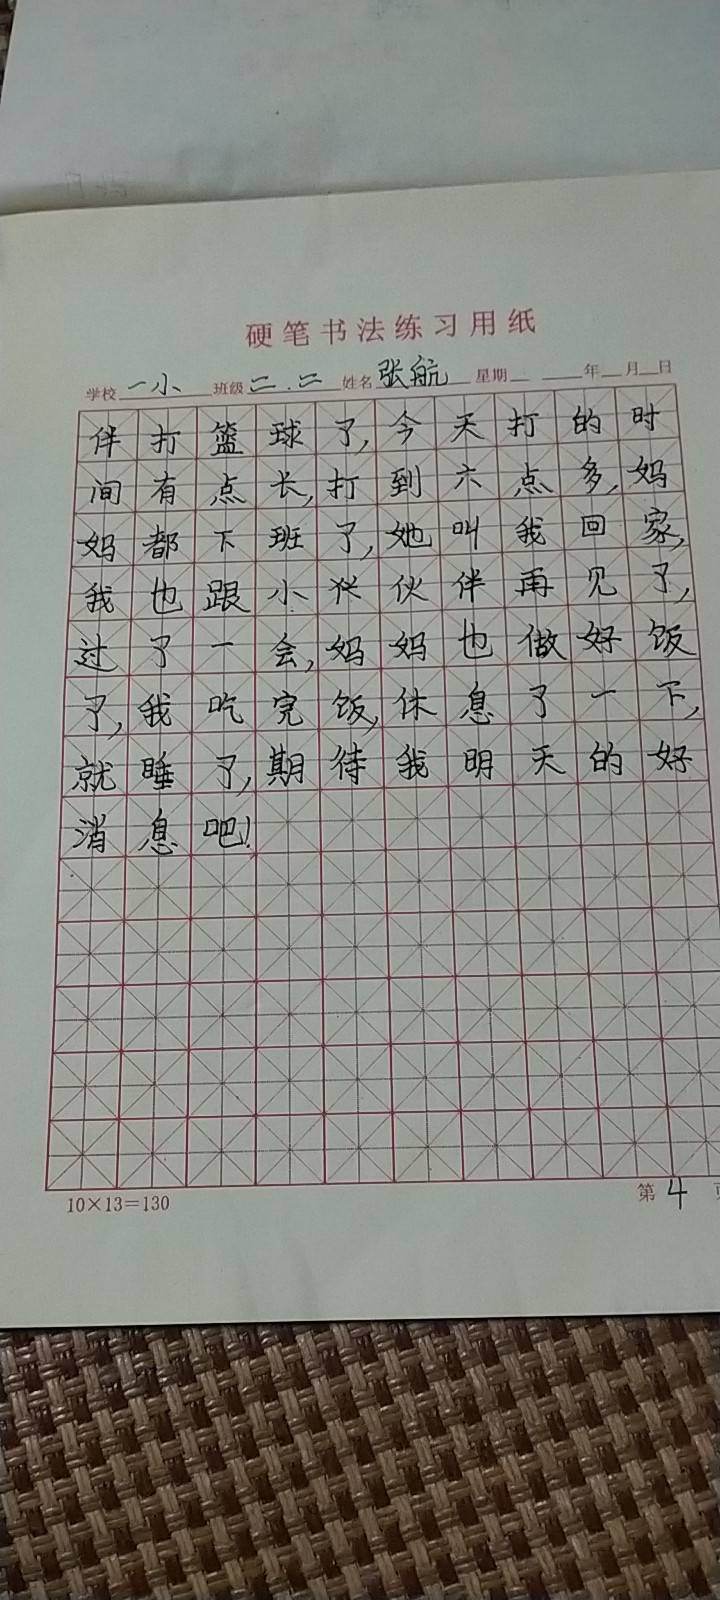 硬笔书法练习用纸
学校 一小 班级 二.二 姓名 张航 星期 年 月 日
伴打篮球了,今天打的时
间有点长,打到六点多,妈
妈都下班了,她叫我回家,
我也跟小伙伴再见了,
过了一会,妈妈也做好饭
了,我吃完饭,休息了一下,
就睡了,期待我明天的好
消息吧!
10×13=130
第 4